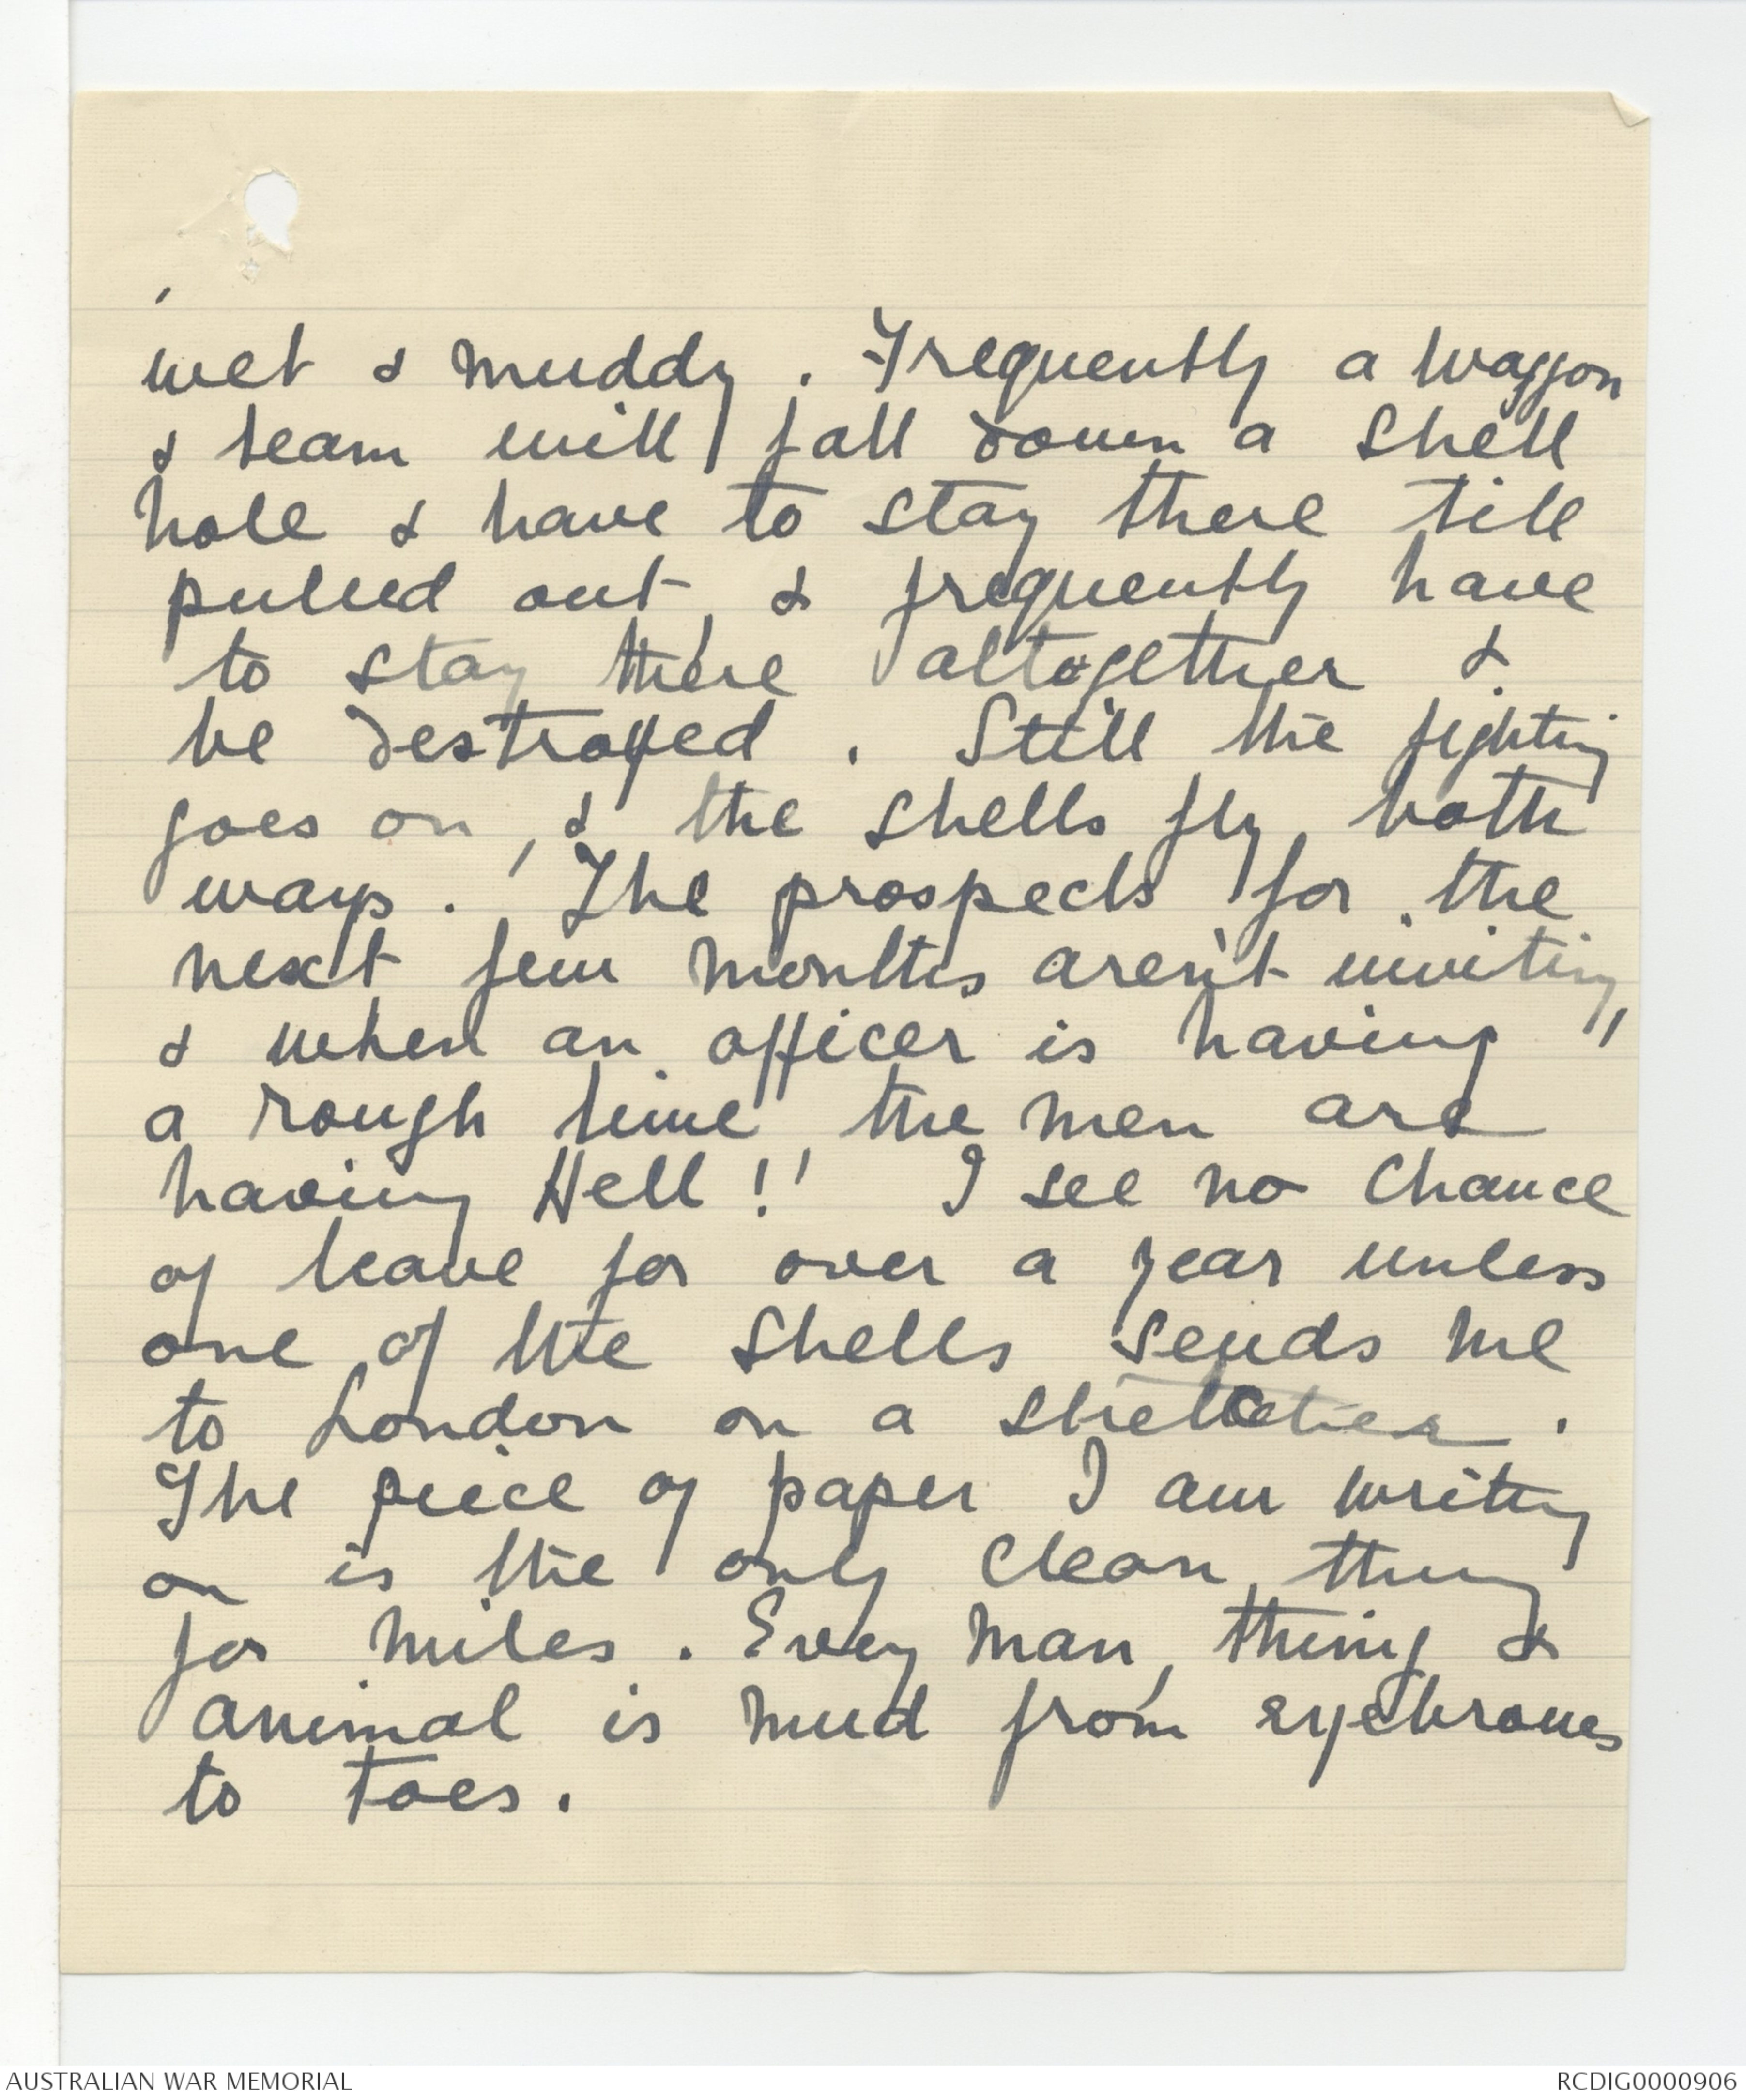 wet & muddy. Frequently a waggon
& team will fall down a shell
hole & have to stay there till
pulled out, & frequently have
to stay there altogether &
be destroyed. Still the fighting
goes on, & the shells fly both
ways. The prospects for the
next few months aren't inviting,
& when an officer is having
a rough time, the men are
having Hell!! I see no chance
of leave for over a year unless
one of the shells sends me
to London on a stretcher.
The piece of paper I am writing
on is the only clean thing
for miles. Every man, thing &
animal is mud from eyebrows
to toes.
AUSTRALIAN WAR MEMORIAL
RCDIG0000906